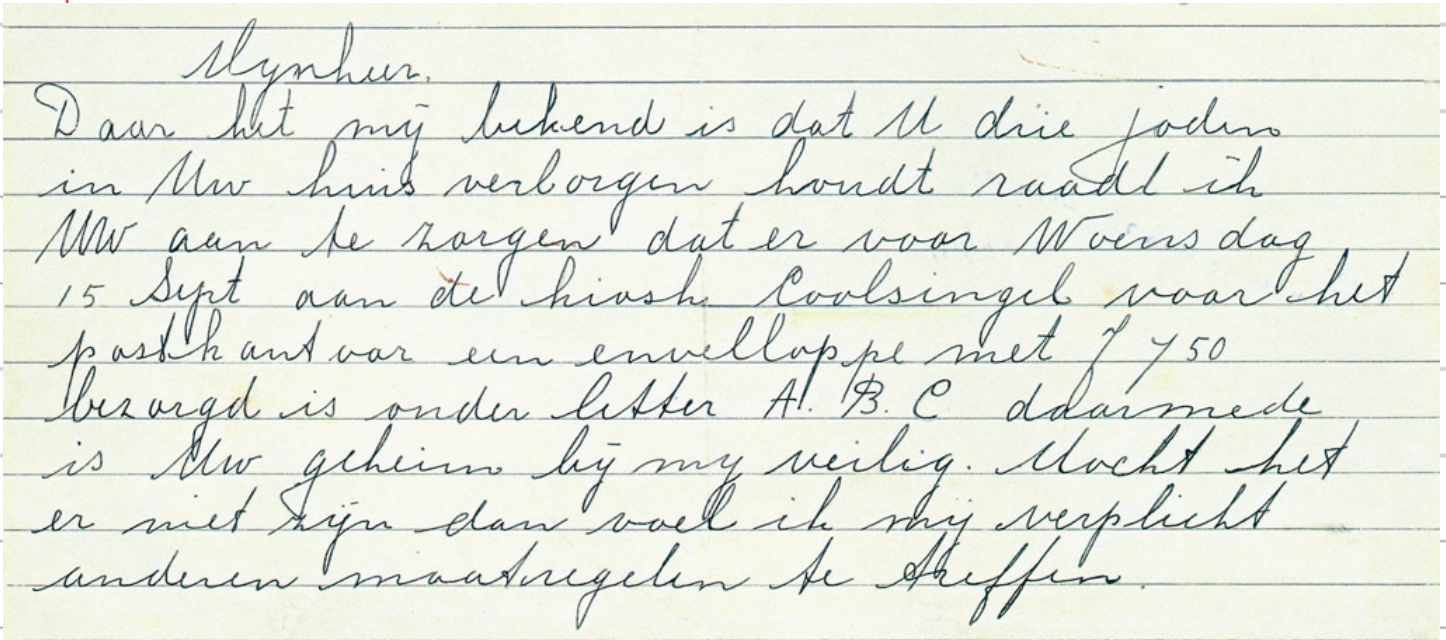 Mynheer.
Daar het mij bekend is dat U drie joden
in Uw huis verborgen houdt raadt ik
UW aan te zorgen dat er voor Woensdag
15 Sept aan de kiosk Coolsingel voor het
postkantoor een envelloppe met ƒ 750
bezorgd is onder letter A. B. C daarmede
is Uw geheim bij my veilig. Mocht het
er niet zijn dan voel ik mij verplicht
anderen maatregelen te treffen.